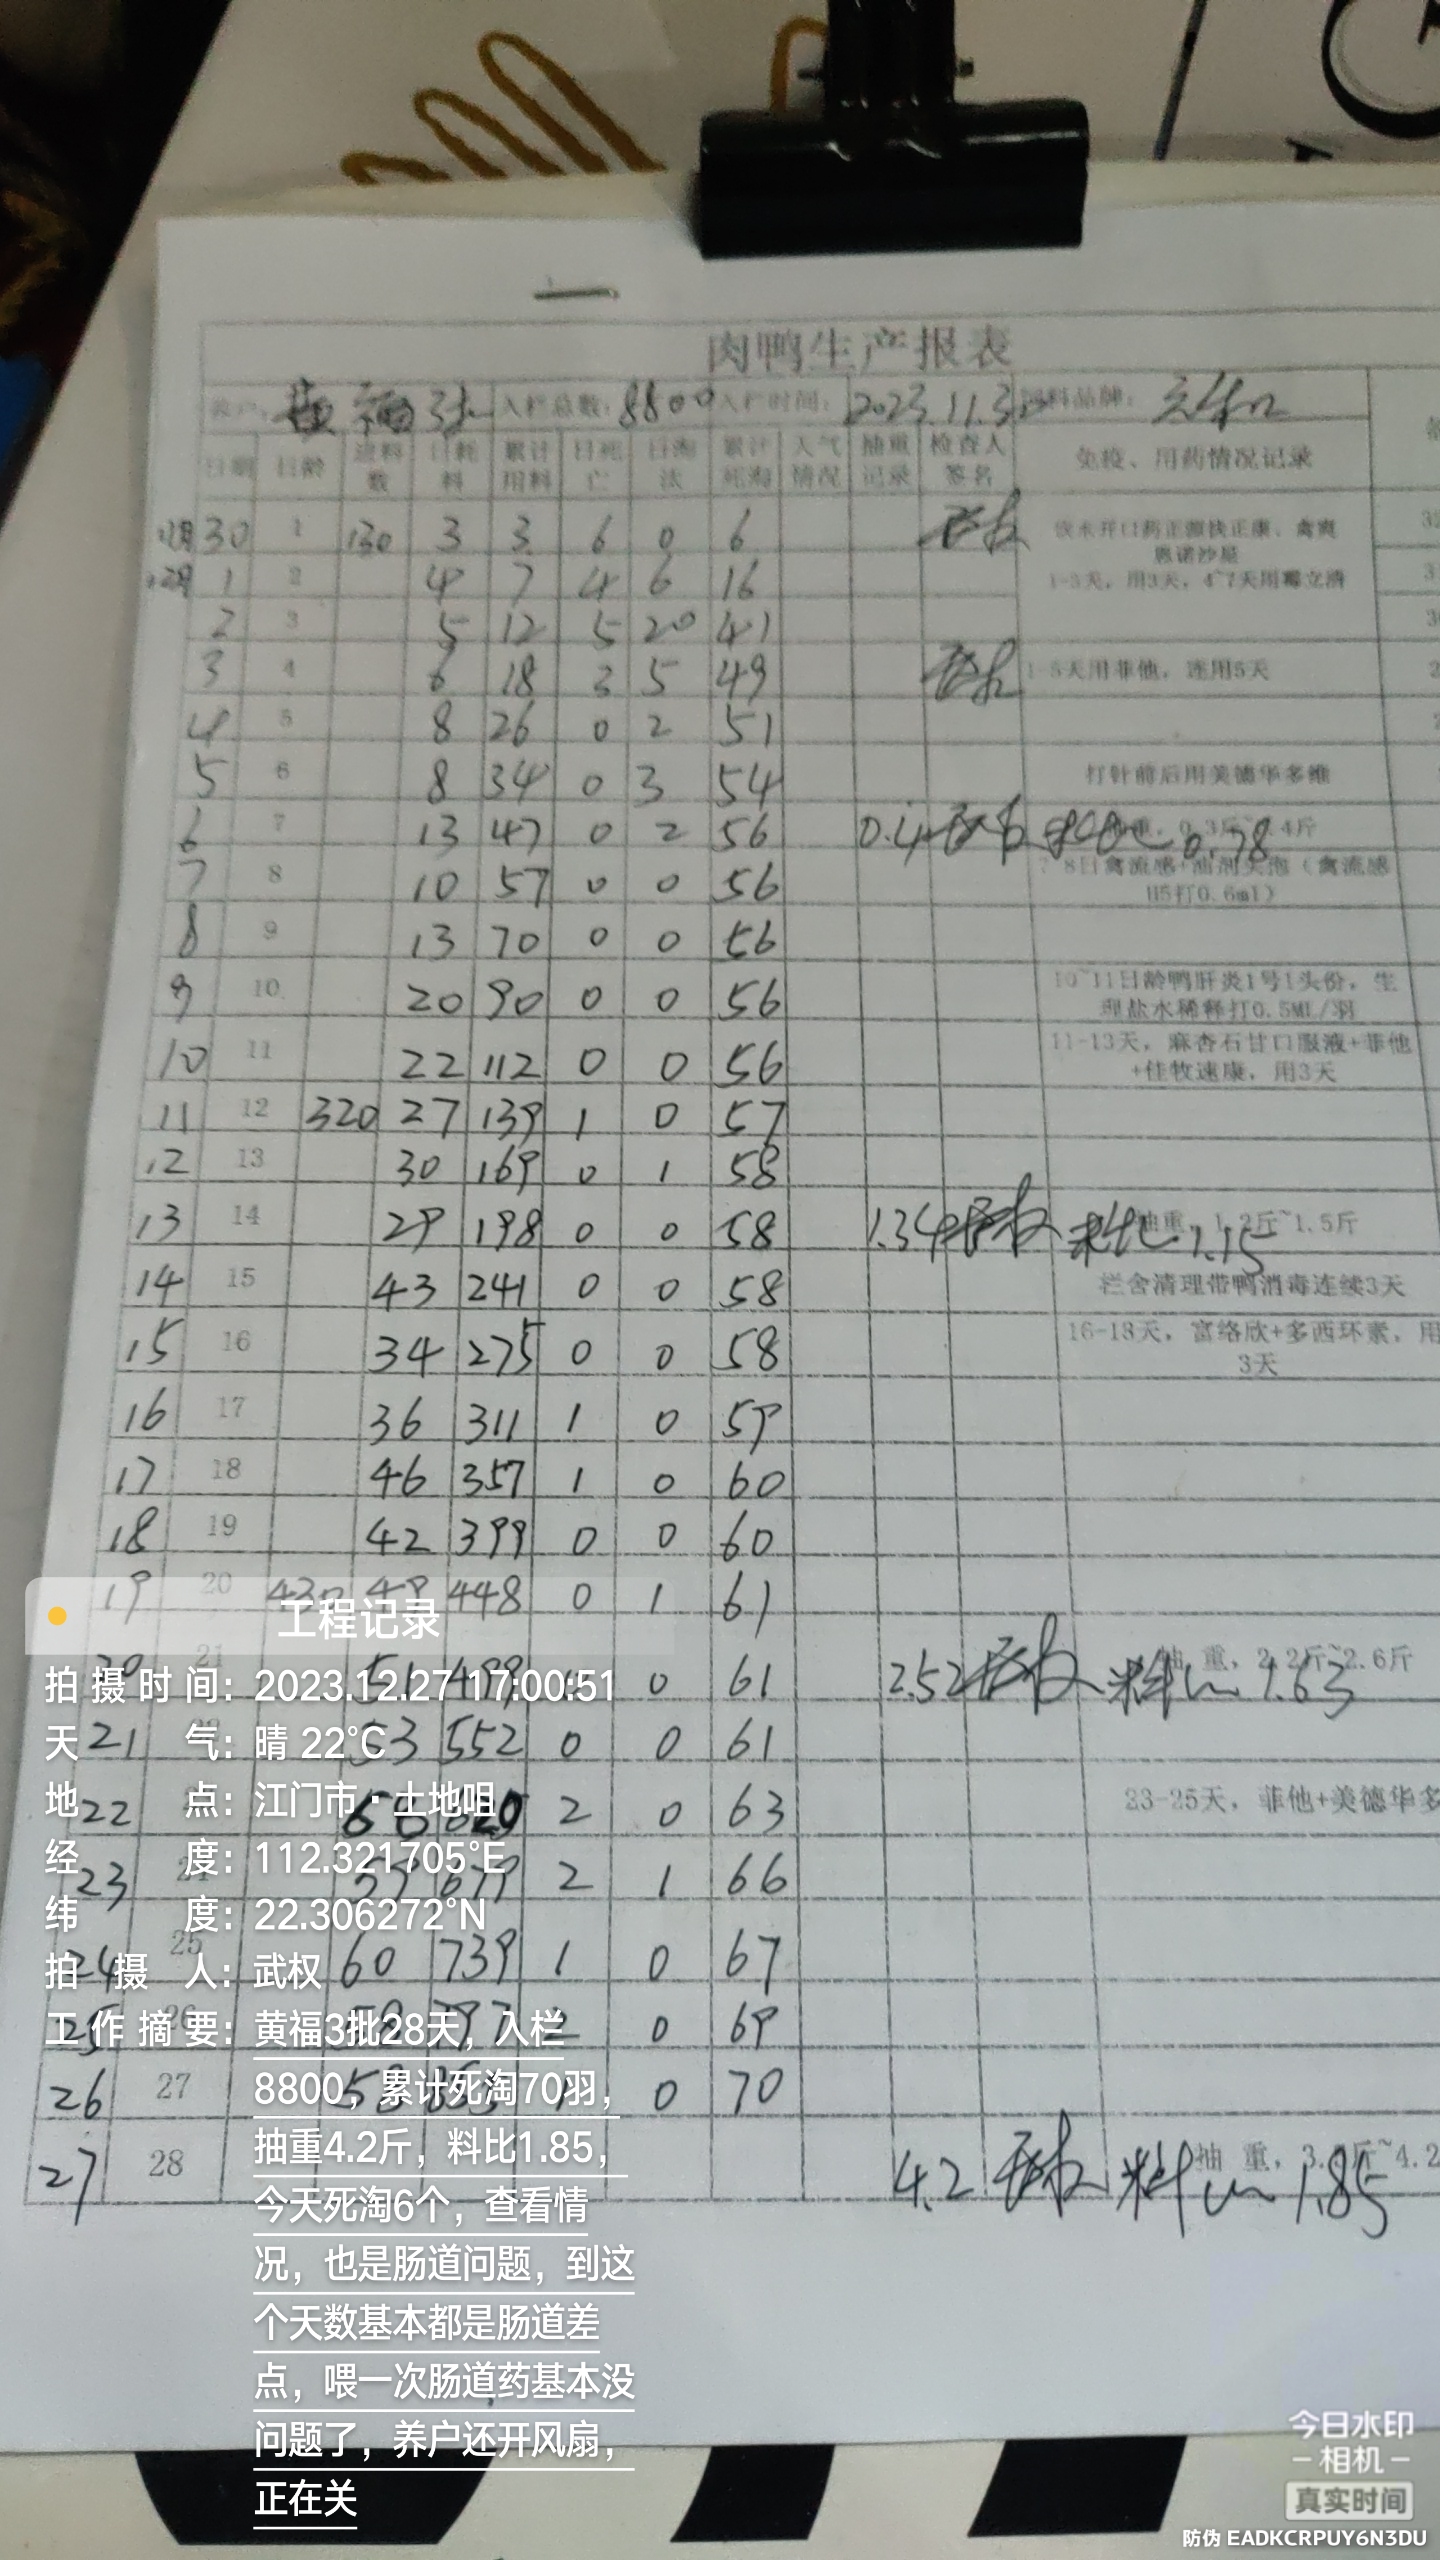 一
肉鸭生产报表
养户: 黄福 入栏总数: 8800 入栏时间: 2023.11.30 饲料品牌:
日期 日龄 进料数 日耗料 累计用料 日死亡 日淘汰 累计死淘 天气情况 抽重记录 检查人签名 免疫、用药情况记录
11月30 1 130 3 3 6 0 6 饮水开口药正源快正康、禽爽 恩诺沙星
12月1 2 4 7 4 6 16 1-3天，用3天，4~7天用霉立清
2 3 5 12 5 20 41
3 4 6 18 3 5 49 1-5天用菲他，连用5天
4 5 8 26 0 2 51
5 6 8 34 0 3 54 打针前后用美德华多维
6 7 13 47 0 2 56 0.4 料比 0.78
7 8 10 57 0 0 56 7~8日禽流感+油剂（禽流感H5打0.6ml）
8 9 13 70 0 0 56
9 10 20 90 0 0 56 10~11日龄鸭肝炎1号1头份，生理盐水稀释打0.5ML/羽
10 11 22 112 0 0 56 11-13天，麻杏石甘口服液+菲他+佳牧速康，用3天
11 12 320 27 139 1 0 57
12 13 30 169 0 1 58
13 14 29 198 0 0 58 1.34 料比 1.15 抽重，1.2斤~1.5斤
14 15 43 241 0 0 58 栏舍清理带鸭消毒连续3天
15 16 34 275 0 0 58 16-18天，富络欣+多西环素，用3天
16 17 36 311 1 0 59
17 18 46 357 1 0 60
18 19 42 399 0 0 60
19 20 430 49 448 0 1 61
工程记录
20 21 51 499 0 61 2.52 料比 1.63 抽 重，2.2斤~2.6斤
拍摄时间: 2023.12.27 17:00:51
21 53 552 0 0 61
天 气: 晴 22°C
22 2 0 63 23-25天，菲他+美德华多
地 点: 江门市·土地咀
23 2 1 66
经 度: 112.321705°E
纬 度: 22.306272°N
24 25 60 739 1 0 67
拍 摄 人: 武权
25 26 0 69
26 27 58 0 70
27 28 4.2 料比 1.85
工作摘要: 黄福3批28天，入栏
8800，累计死淘70羽，
抽重4.2斤，料比1.85，
今天死淘6个，查看情
况，也是肠道问题，到这
个天数基本都是肠道差
点，喂一次肠道药基本没
问题了，养户还开风扇，
正在关
今日水印
相机
真实时间
防伪 EADKCRPUY6N3DU